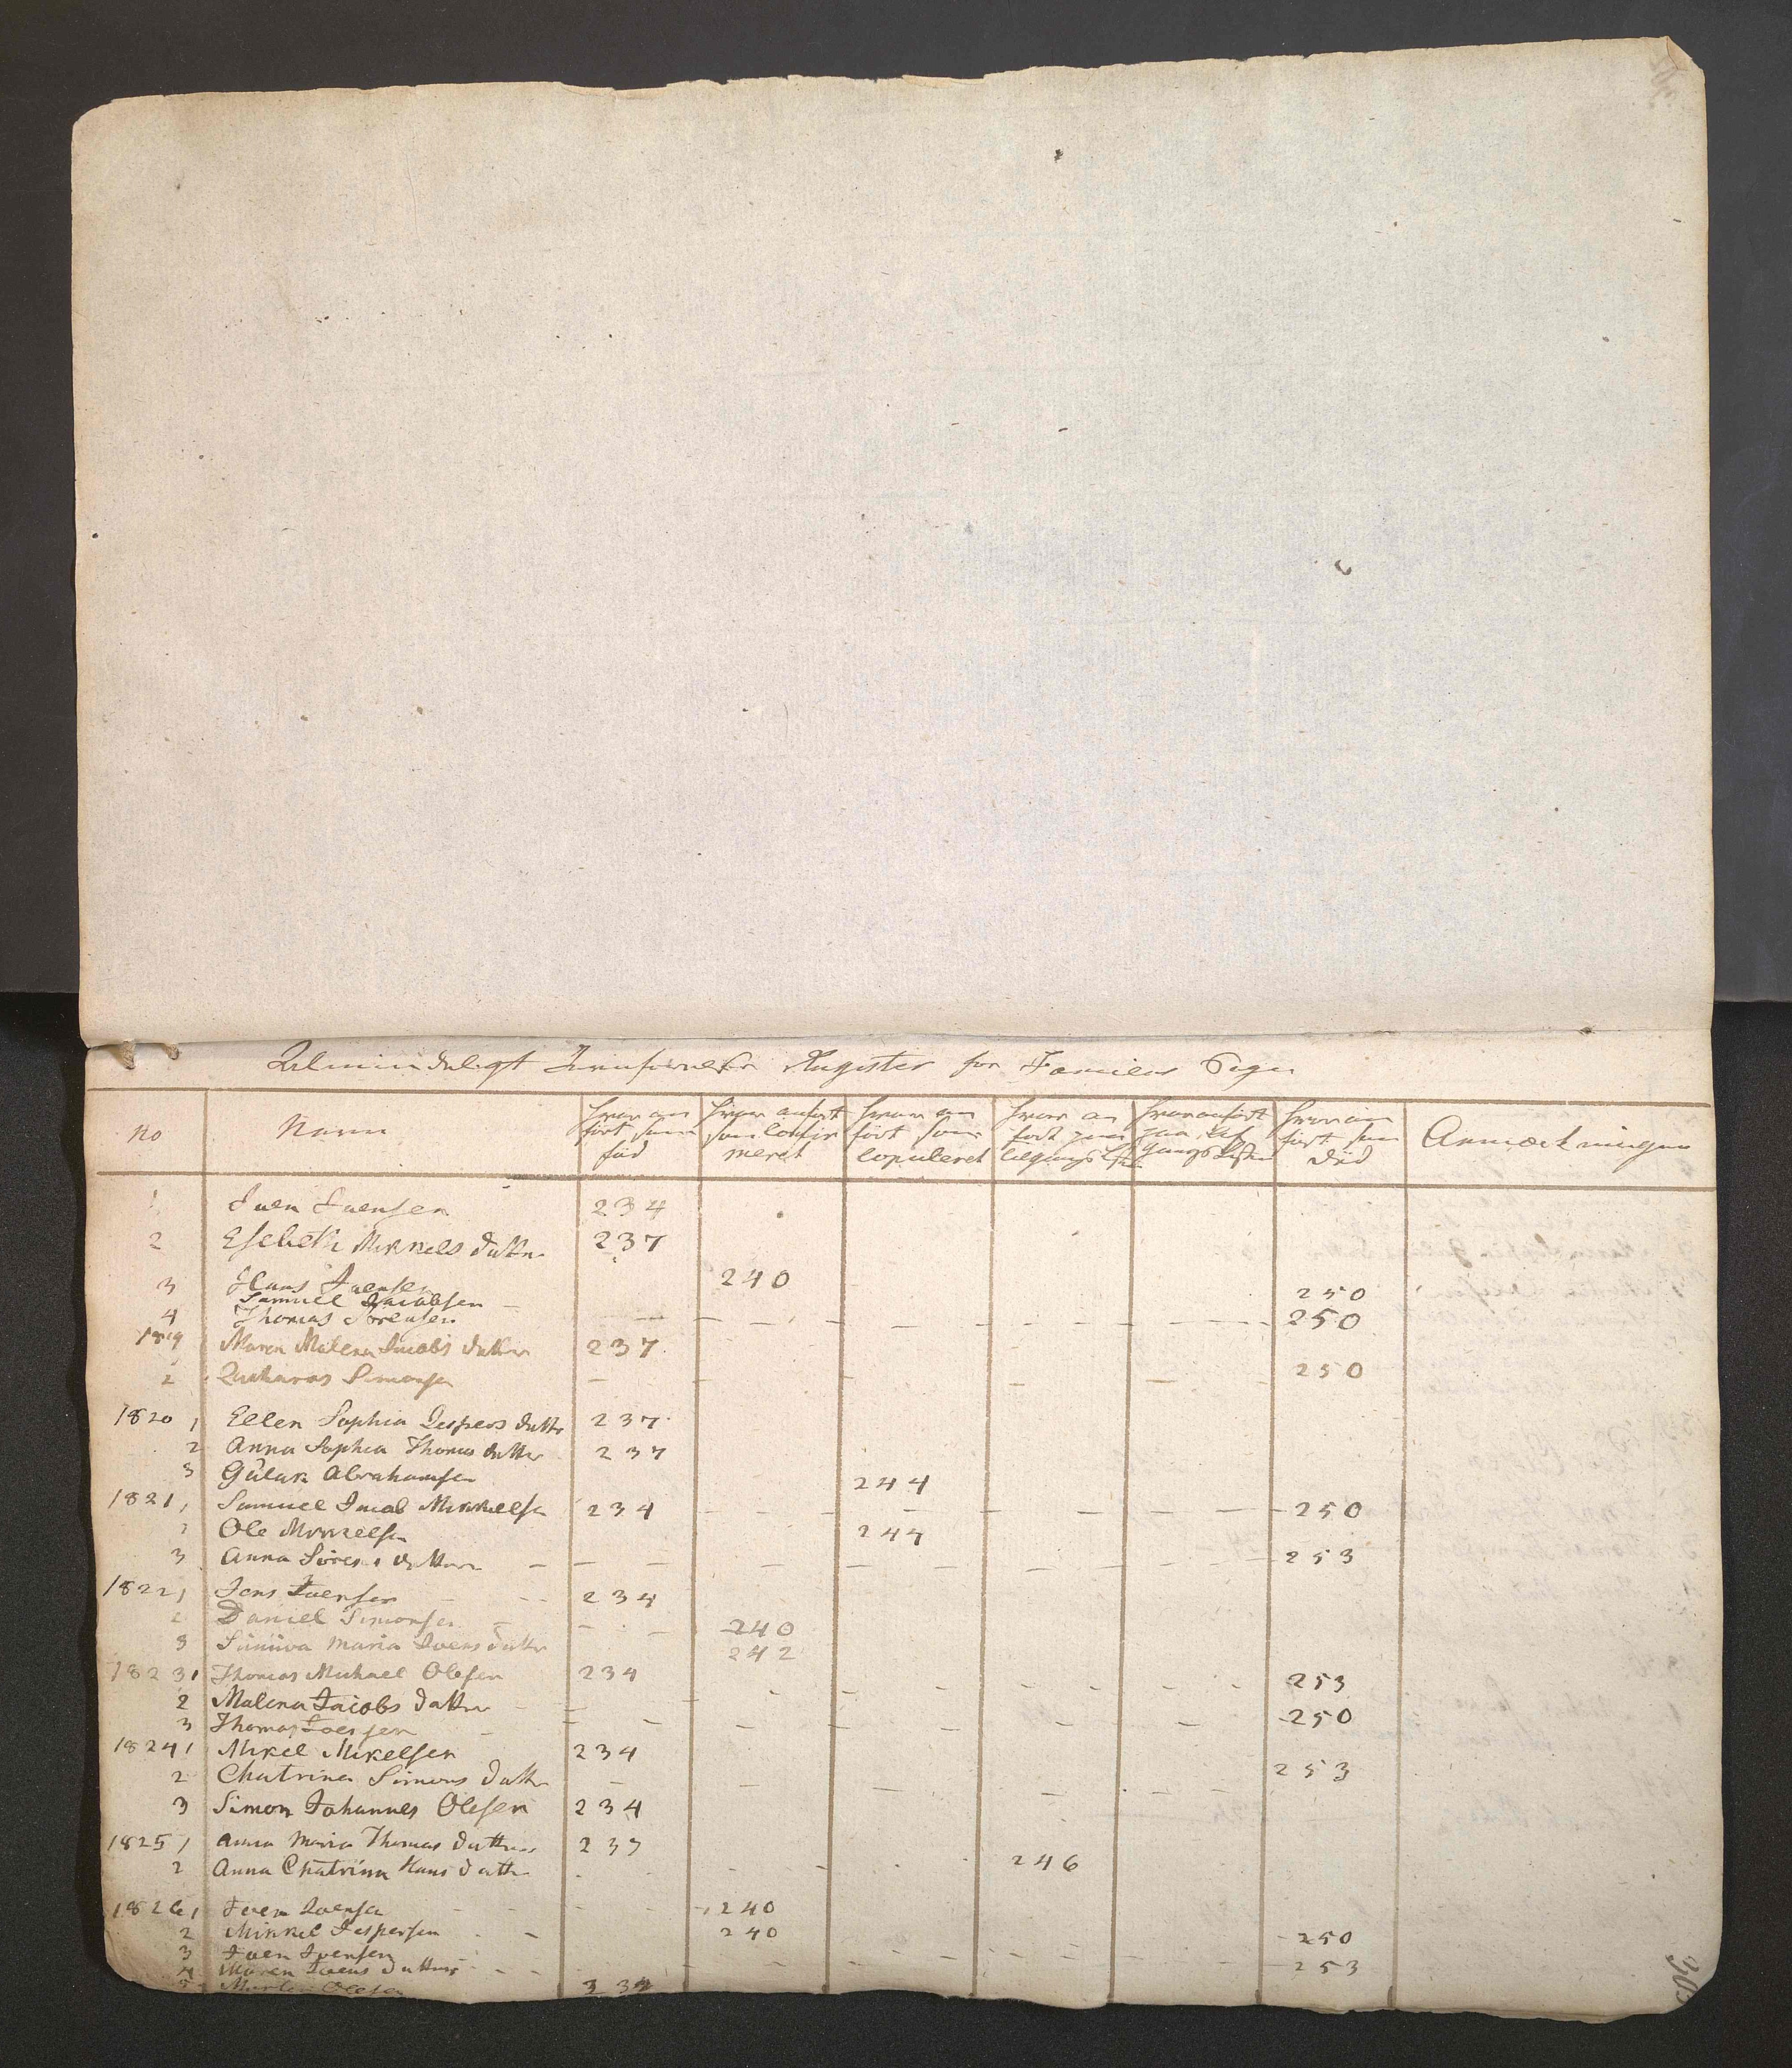 Almindeligt Jevnførelses Register for Famiens Sogn
No Navn hvor an ført som fød hvor anført som Confir meret hvor an ført som Copuleret hvor an ført paa tilgangs Listen hvor anført paa Af gangs Listen hvor an ført som død Anmærkninger
1 Iven Ivensen 234
2 Elsebeth Mikkels datter 237
3 Hans Ivensen 240
Samuel Jacobsen 250
4 Thomas Sørensen 250
1819 Maren Malena Jacobs datter 237
2 Zacharas Simonsen 250
1820 1 Ellen Sophia Jespers datter 237
2 Anna Sophia Thomas datter 237
3 Gulak Abrahamsen 244
1821 1 Samuel Jacob Mikkelsen 234 250
2 Ole Mikkelsen 244
3 Anna datter 253
1822 1 Jens Ivensen 234
2 Daniel Simonsen 240
3 Sünüva Maria Ivens datter 242
1823 1 Thomas Michael Olesen 234
2 Malena Jacobs datter 253
3 Thomas Ivensen 250
1824 1 Mikel Mikelsen 234
2 Chatrina Simons datter 253
3 Simon Johannes Olesen 234
1825 1 Anna Maria Thomas datter 237
2 Anna Chatrina Hans datter 246
1826 1 Iven Ivensen 240
2 Mikkel Jespersen 240
3 Iven Ivensen 250
4 Maren Ivens datter 253
5 Olesen 234